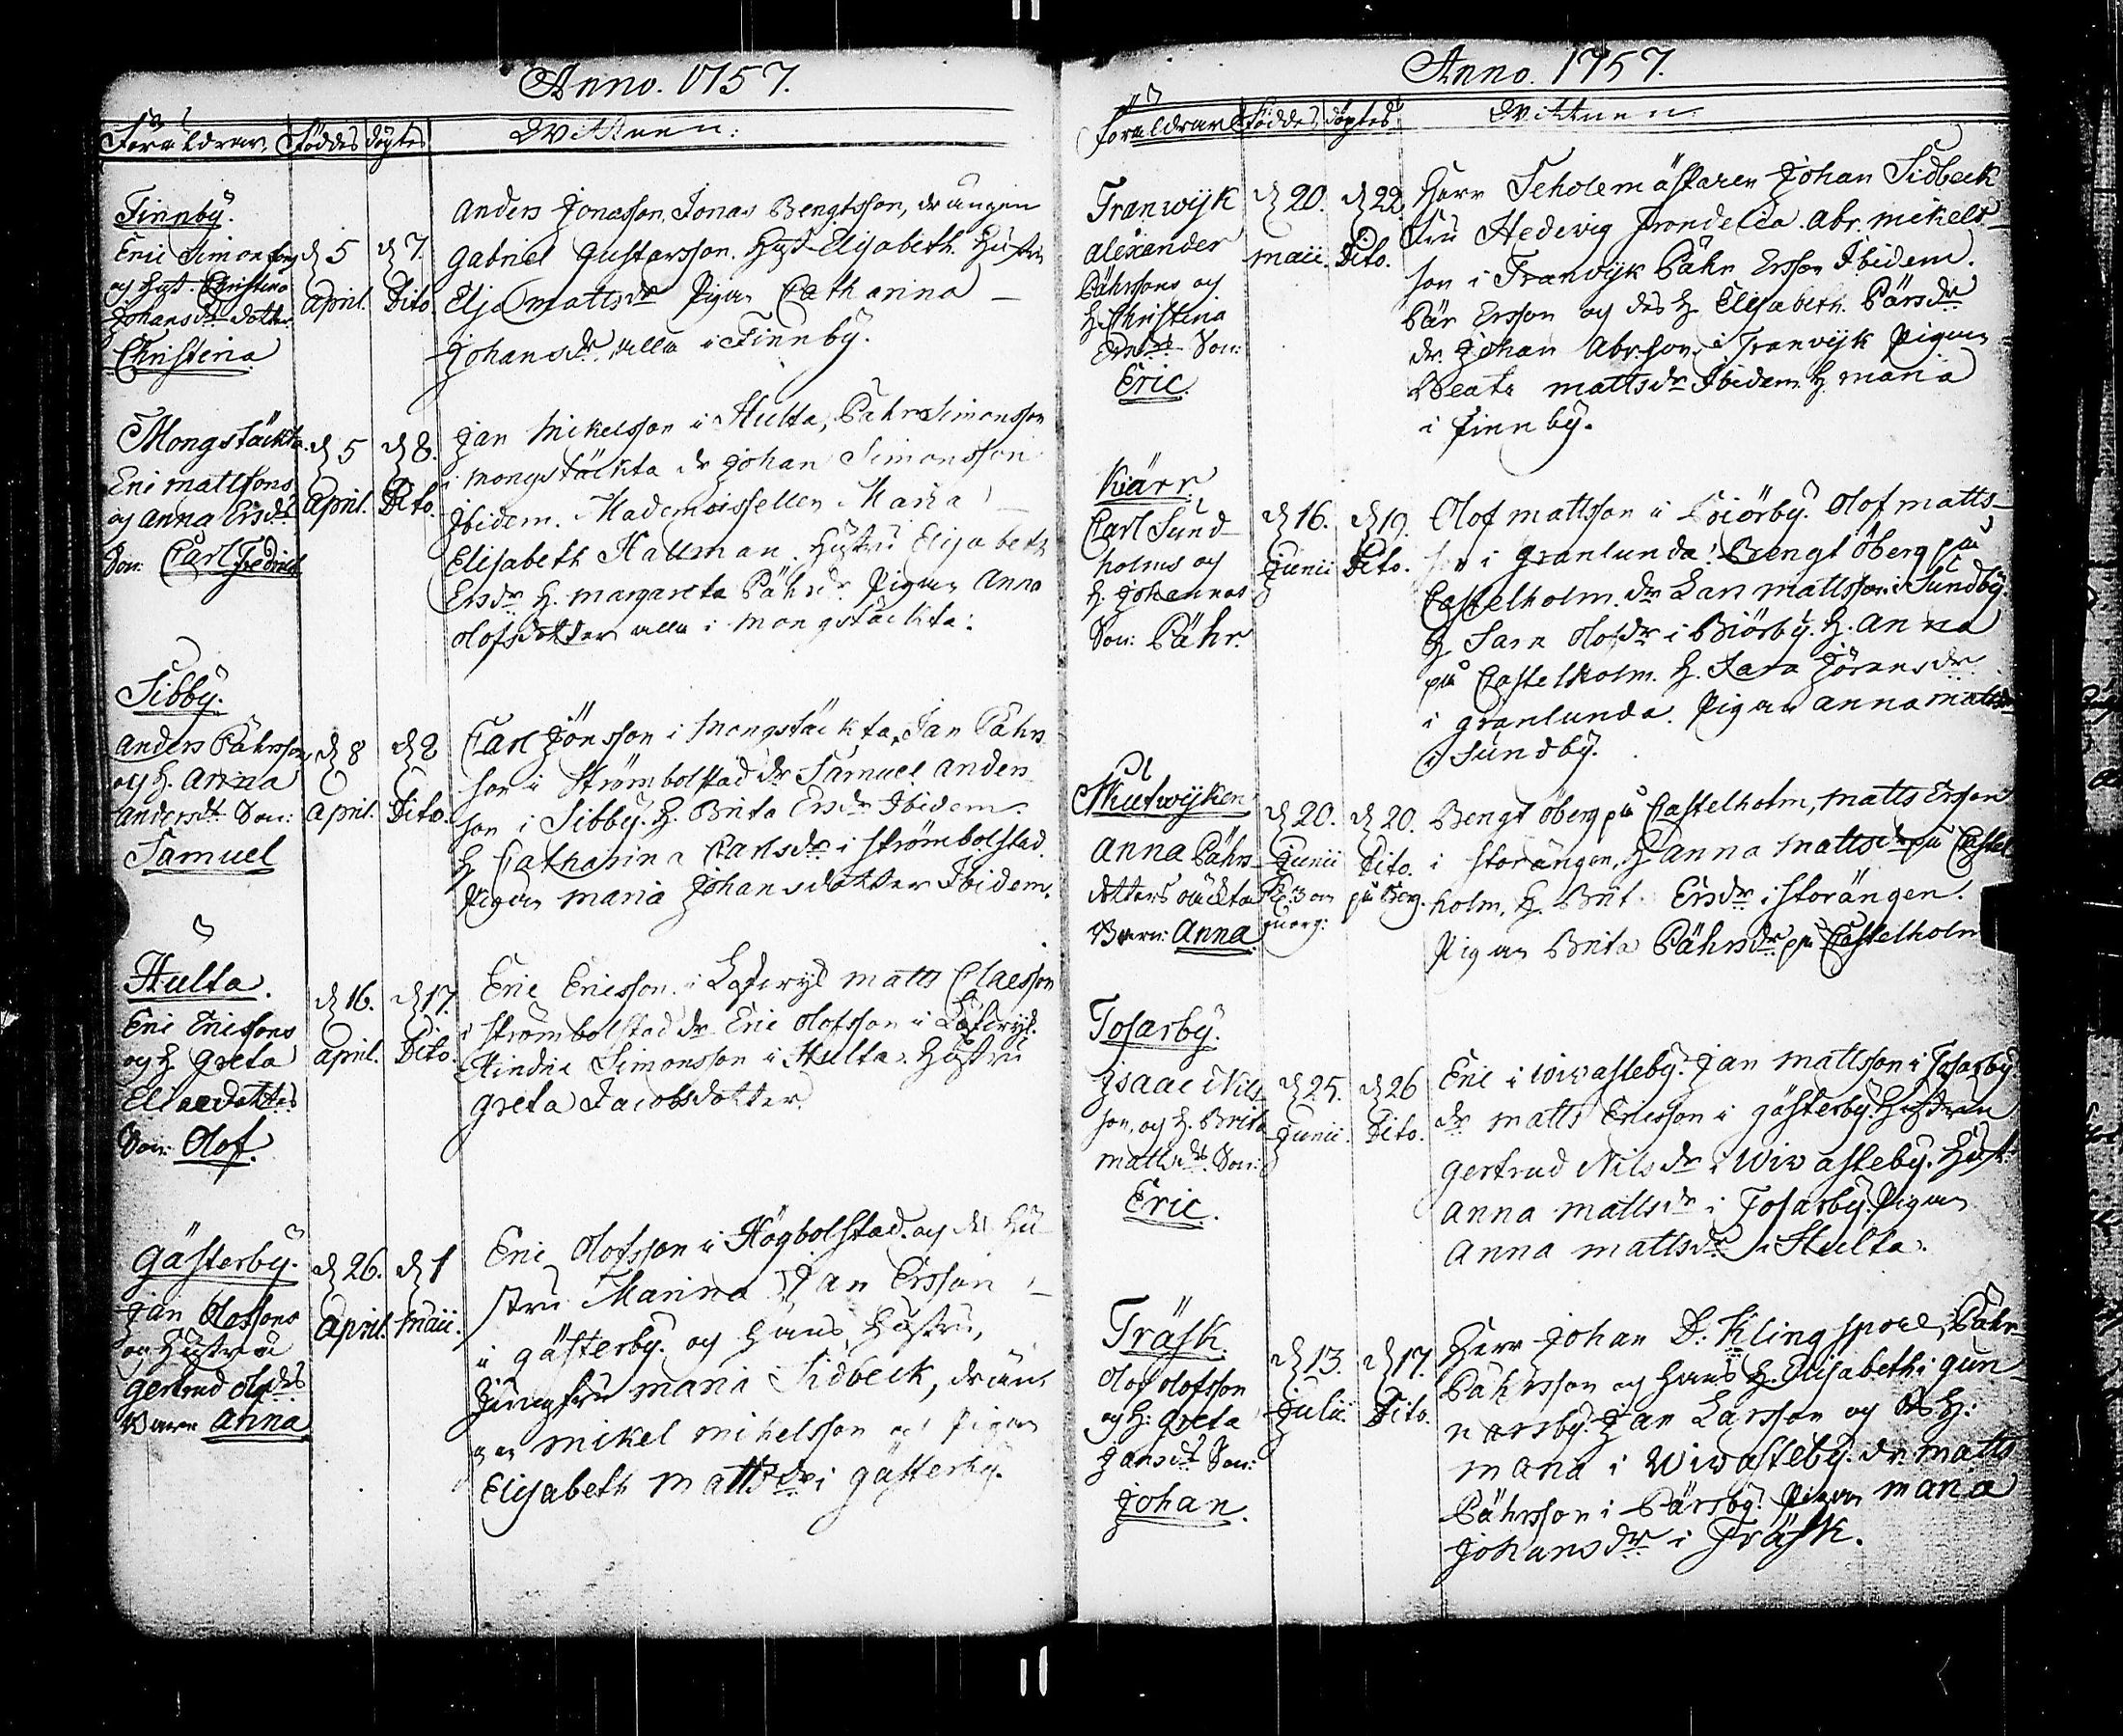 Anno. 1757.
Föräldrar. Föddes döptes Wittnen:
Finnby.
Eric Simonsons
og Hust. Christina
Johansdr dotter
Christina
d 5
April.
d 7.
Dito
Anders Jonasson, Jonas Bengtsson, drängen
Gabriel Gustafsson. Hust Elisabeth. Hustru
Elsa mattsdr Pigan Catharina
Johansdr. alla i Finnby.
Mongstäckta
Eric mattssons
og Anna Ersdrs
Son: Carl Fredric
d 5
April.
d 8.
Dito.
Jan Mikelsson i Hulta, Pähr Simonsson
i mongstäckta dr Johan Simonsson
Ibidem. Mademoissellen Maria
Elisabeth Hallman. Hustru Elisabeth
Ersdr H. margareta Pährsdr Pigan Anna
olofsdotter alla i mongstäckta.
Sibby.
Anders Pährsson
og H. Anna
Andersdr Son:
Samuel
d 8
April.
d 8
Dito.
Carl Jönsson i Mongstäckta, Jan Pährs
son i Strömbolstad dr Samuel Anders
son i Sibby. H. Brita Ersdr Ibidem.
H Catharina Carlsdr i Strömbolstad.
Pigan Maria Johansdotter Ibidem.
Hulta.
Eric Ericssons
og H Greta
dotter
Son: Olof.
d 16.
April.
d 17.
Dito.
Eric Ericsson i matts Claesson
i Strömbolstad dr Eric Olofsson i
Hindric Simonsson i Hulta. Hustru
Greta Jacobsdotter.
Gästerby.
Jan Olofssons
og Hustru
Gertrud olofdrs
Barn Anna
d 26.
April.
d 1
Maii.
Eric Olofsson i Högbolstad og ds Hu
stru Marina Jan Ersson
i Gästerby og Hans Hustru,
Jungfru Maria Sidbeck, dräng
en mikel mikelsson og Pigan
Elisabeth Mattsdr i Gästerby.
Anno. 1757.
Föräldrar Föddes, döptes Wittnen
Tranwijk
Alexander
Pährssons og
H. Christina
Ersdrs Son:
Eric.
d 20.
Maii.
d 22
Dito.
Herr Scholemästaren Johan Sidbeck
Fru Hedevig Abr. mikels
son i Tranvijk Pähr Ersson Ibidem.
Pär Ersson og des H. Elisabeth. Pärsdr
dr. Johan Abrson i Tranvijk Pigan
Beata mattsdr Ibidem H. maria
i Finnby.
Kiärr.
Carl Sund
holms og
H. Johannas
Son: Pähr.
d 16.
Junii
d 19.
Dito.
Olof mattsson i Biörby. Olof matts
son i Granlunda. Bengt Öberg på
Castelholm. dr Lars Mattsson i Sundby.
H Sara Olofsdr i Biörby. H. Anna
på Castelholm. H. Sara Göransdr
i Granlunda. Pigan Anna mattsdr
i Sundby.
Skutwijken
Anna Pährs
dotters oäckta
Barn: Anna
d 20.
Junii
Kl. 3 om
morg:
d 20.
Dito.
på Berg.
Bengt Öberg på Castelholm, Matts Ersson
i Storängen, H Anna Mattsdr på Castel
holm, H. Brit. Ersdr i Storängen.
Pigan Brita Pährsdr på Castelholm
Tosarby.
Isaac Nils
son, og H. Brita
mattsdrs Son:
Eric.
d 25.
Junii.
d 26
Dito.
Eric i Wivasteby. Jan Mattsson i Tosarby
dr Matts Ericsson i Gästerby. Hustrun
Gertrud Nilsdr i Wivasteby. Hust:
Anna Mattsdr i Tosarby. Pigan
Anna mattsdr i Hulta.
Träsk.
Olof Olofsson
og H: Greta
Jansdr Son:
Johan.
d 13.
Julii.
d 17.
Dito.
Herr Johan D: Klingspore, Pähr
Pährsson og Hans H. Elisabeth i Gun
narsby. Jan Larsson og ds H:
Maria i Wivasteby. dr matts
Pährsson i Pärsby. Pigan Maria
Johansdr i Träsk.